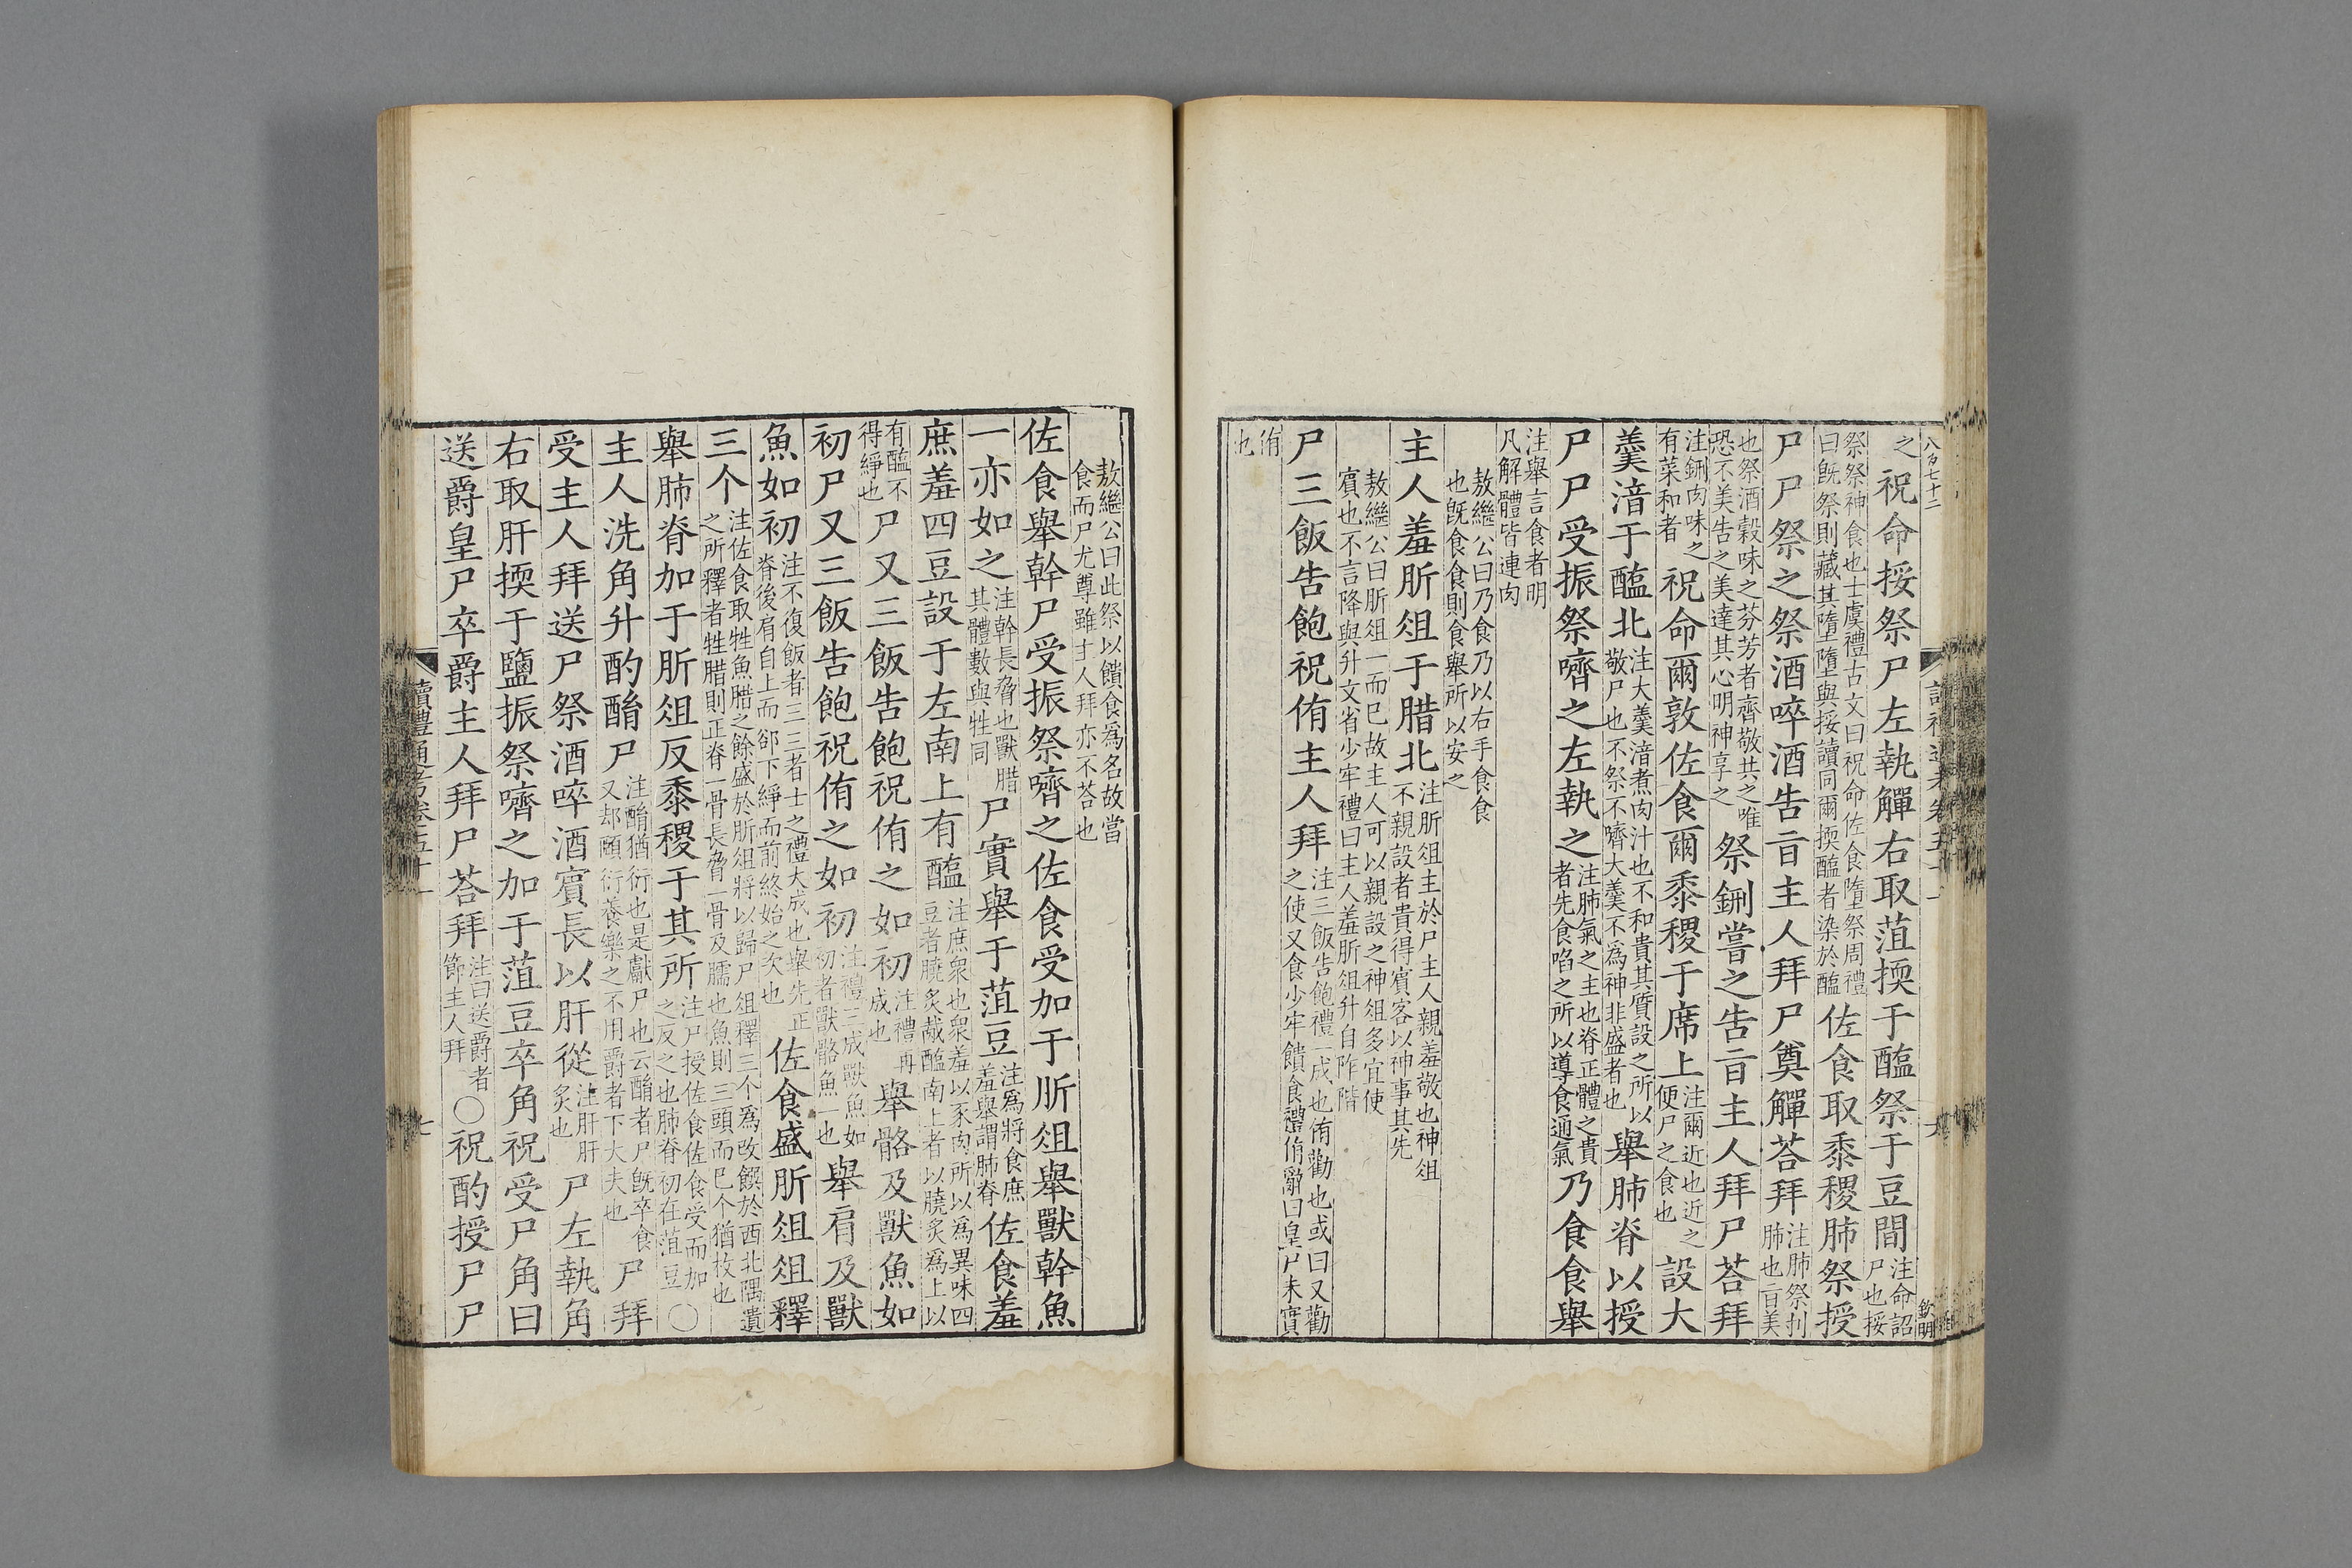 八百七十二
之祝命挼祭尸左執觶右取菹㨎于醢祭于豆間注命詔尸也挼
祭祭神食也士虞禮古文曰祝命佐食墮祭周禮曰旣祭則藏其墮墮與挼讀同爾㨎醢者染於醢佐食取黍稷肺祭授
尸尸祭之祭酒啐酒告旨主人拜尸奠觶荅拜注肺祭刌肺也旨美
也祭酒穀味之芬芳者齊敬共之唯恐不美告之美達其心明神享之祭鉶嘗之告旨主人拜尸荅拜
注鉶肉味之有菜和者祝命爾敦佐食爾黍稷于席上注爾近也近之便尸之食也設大
羹湆于醢北注大羹湆煮肉汁也不和貴其質設之所以敬尸也不祭不嚌大羹不爲神非盛者也舉肺脊以授
尸尸受振祭嚌之左執之注肺氣之主也脊正體之貴者先食啗之所以導食通氣乃食食舉
注舉言食者明凡解體皆連肉
敖繼公曰乃食乃以右手食食也旣食食則食舉所以安之
主人羞肵俎于腊北注肵俎主於尸主人親羞敬也神俎不親設者貴得賓客以神事其先
敖繼公曰肵俎一而已故主人可以親設之神俎多宜使賓也不言降與升文省少牢禮曰主人羞肵俎升自阼階
尸三飯告飽祝侑主人拜注三飯告飽禮一成也侑勸也或曰又勸之使又食少牢饋食禮侑辭曰皇尸未實
侑也
敖繼公曰此祭以饋食爲名故當食而尸尤尊雖主人拜亦不荅也
佐食舉幹尸受振祭嚌之佐食受加于肵俎舉獸幹魚
一亦如之注幹長脅也獸腊其體數與牲同尸實舉于菹豆注爲將食庶羞舉謂肺脊佐食羞
庶羞四豆設于左南上有醢注庶衆也衆羞以豕肉所以爲異味四豆者膮炙胾醢南上者以膮炙爲上以
有醢不得綪也尸又三飯告飽祝侑之如初注禮再成也舉骼及獸魚如
初尸又三飯告飽祝侑之如初注禮三成獸魚如初者獸骼魚一也舉肩及獸
魚如初注不復飯者三三者士之禮大成也舉先正脊後肩自上而卻下綪而前終始之次也佐食盛肵俎俎釋
三个注佐食取牲魚腊之餘盛於肵俎將以歸尸俎釋三个爲改饌於西北隅遺之所釋者牲腊則正脊一骨長脅一骨及臑也魚則三頭而已个猶枚也
舉肺脊加于肵俎反黍稷于其所注尸授佐食佐食受而加之反之也肺脊初在菹豆〇
主人洗角升酌酳尸注酳猶衍也是獻尸也云酳者尸旣卒食又却頤衍養樂之不用爵者下大夫也尸拜
受主人拜送尸祭酒啐酒賓長以肝從注肝肝炙也尸左執角
右取肝㨎于鹽振祭嚌之加于菹豆卒角祝受尸角曰
送爵皇尸卒爵主人拜尸荅拜注曰送爵者節主人拜〇祝酌授尸尸
讀禮通考卷五十一
七